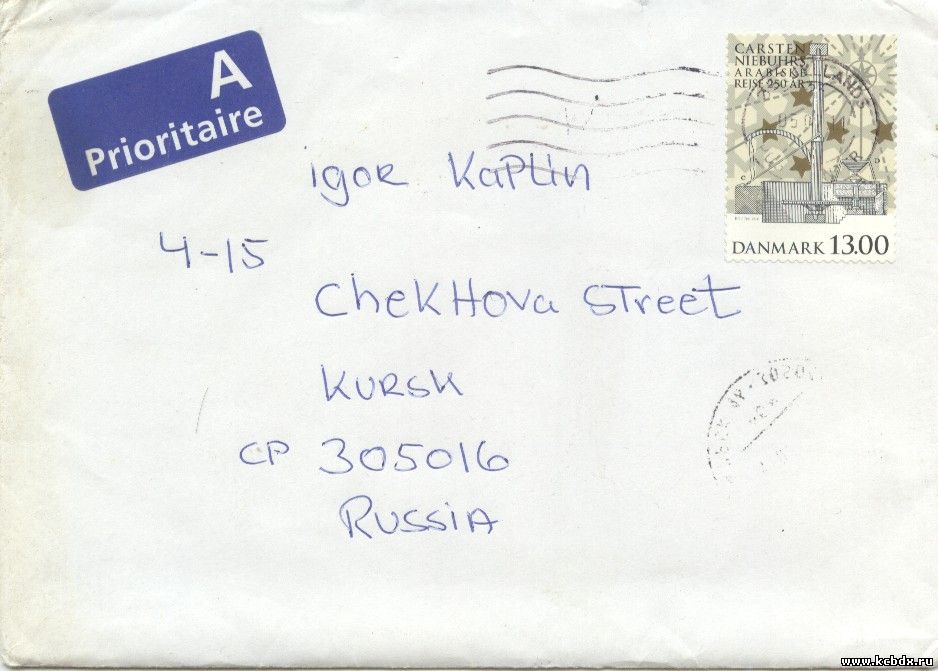 A
Prioritaire
CARSTEN
NIEBUHRS
ARABISKE
REJSE 250 ÅR
DANMARK 13.00
Igor Kaplin
4-15
Chekhova Street
Kursk
CP 305016
Russia
www.kcbdx.ru